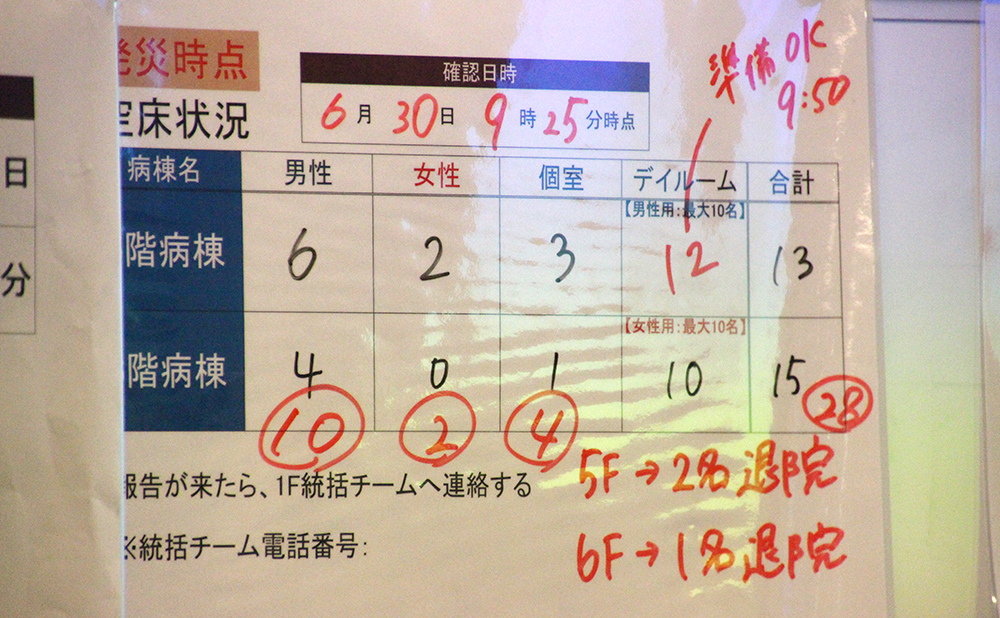 発災時点
準備OK
9:50
空床状況
確認日時
6月30日9時25分時点
病棟名 男性 女性 個室 デイルーム 合計
【男性用：最大10名】
階病棟 6 2 3 12 13
【女性用：最大10名】
階病棟 4 0 1 10 15
10 2 4 28
報告が来たら、1F統括チームへ連絡する
5F→2名退院
※統括チーム電話番号：
6F→1名退院
日
分